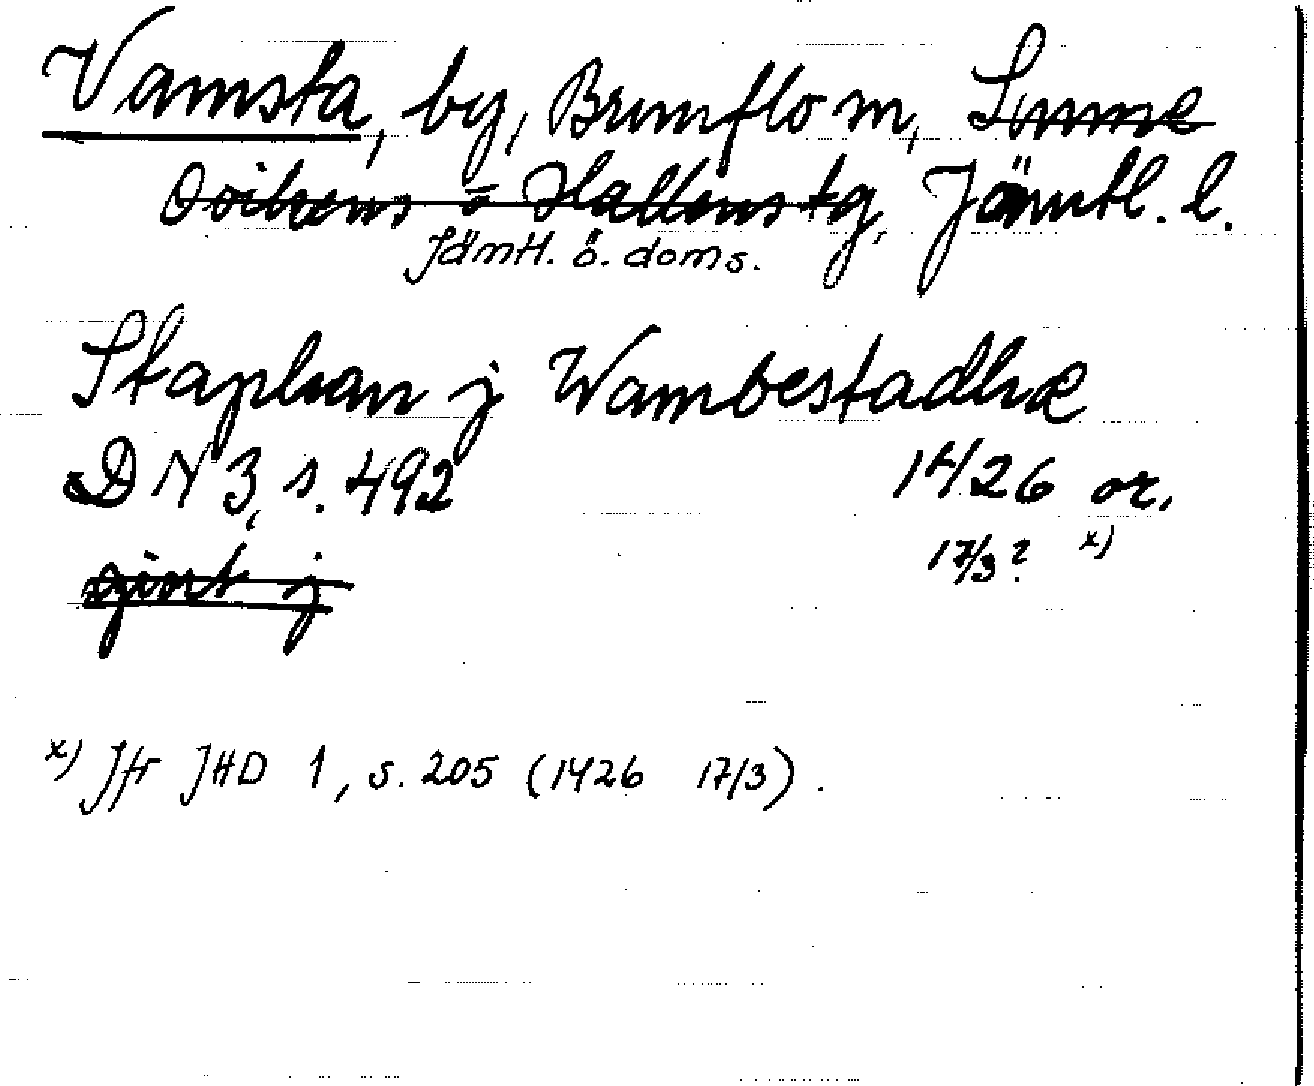 Vamsta, by, Brunflo sn, Sunne
Ovikens o Hallens tg, Jämtl. l.
Jämtl. ö. doms.
Staphan j Wambestadhæ
DN 3, s. 492 1426 or.
17/3? x)
giort j
x) Jfr JHD 1, s. 205 (1426 17/3).